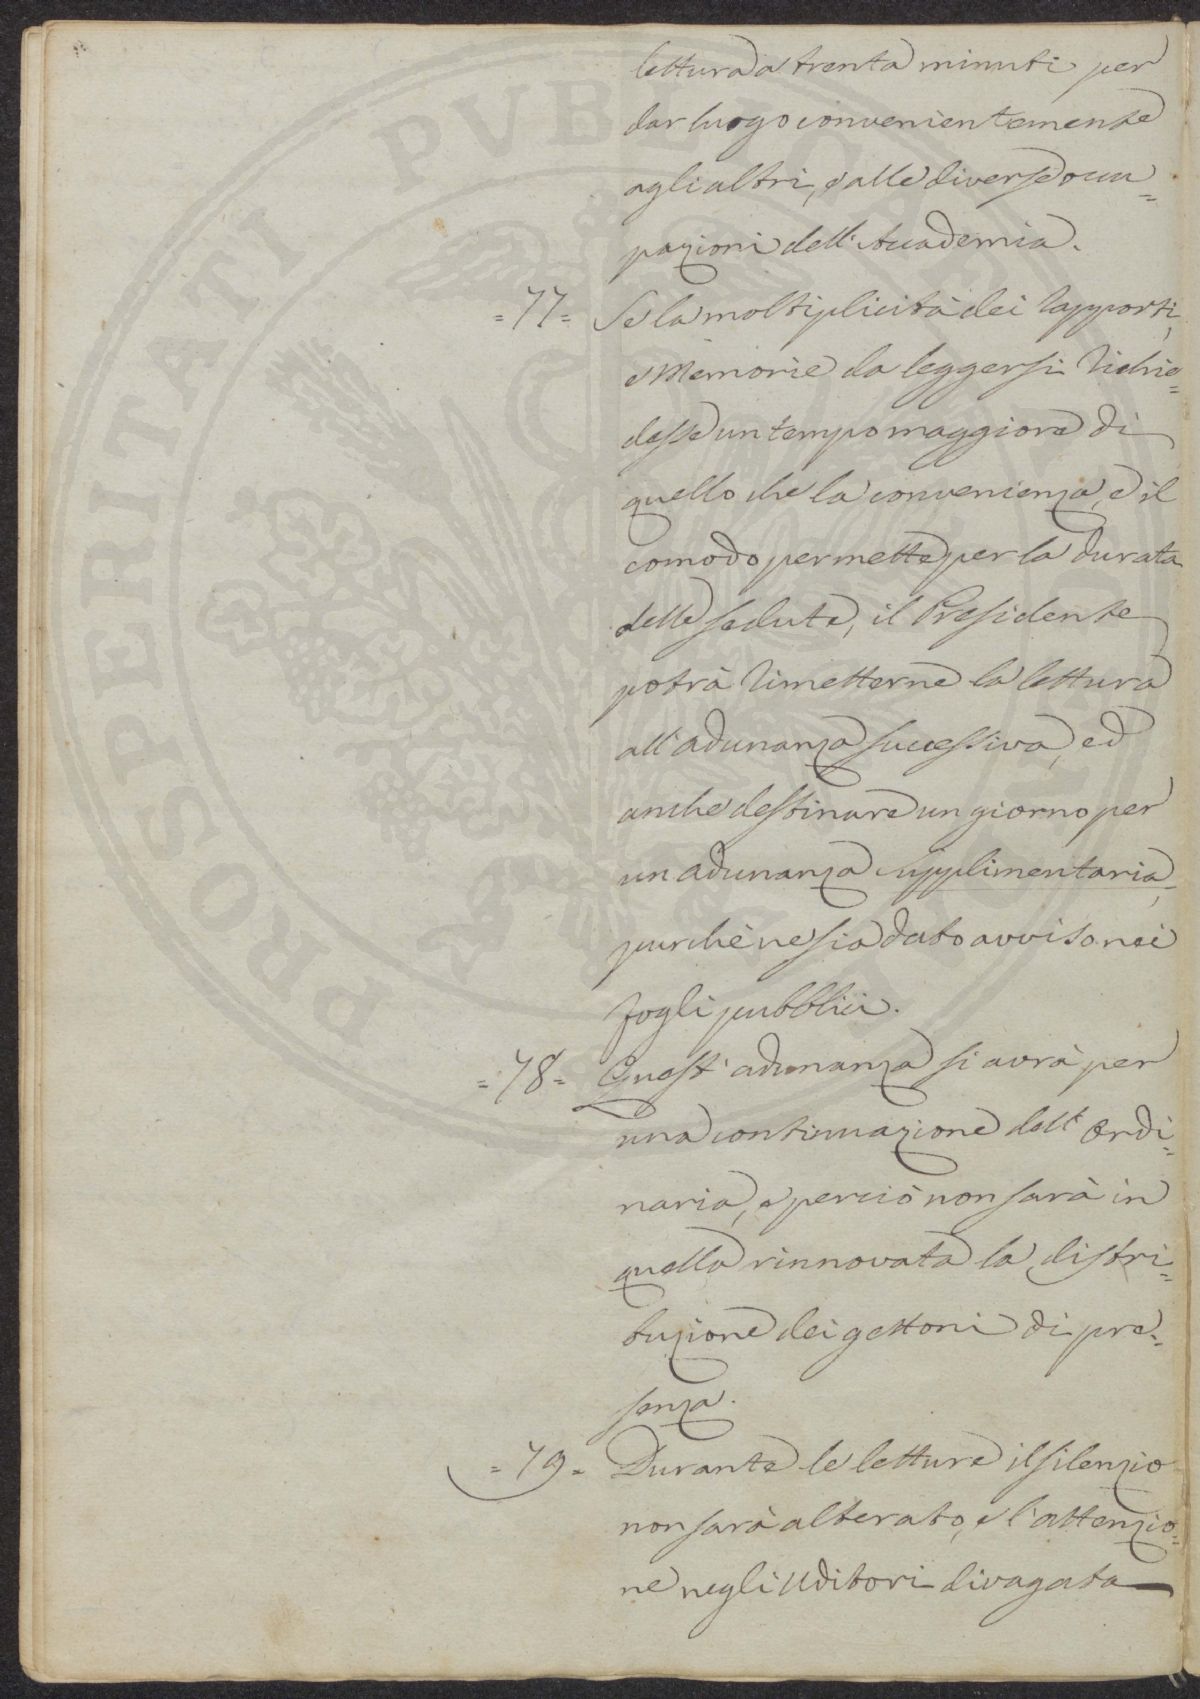 lettura a trenta minuti per
dar luogo convenientemente
agli altri, e alle diverse occu=
pazioni dell'Accademia.
=77= Se la moltiplicità dei Rapporti,
e Memorie da leggersi Richie=
desse un tempo maggiore di
quello che la convenienza, e il
comodo permette per la durata
delle sedute, il Presidente
potrà Rimetterne la lettura
all'adunanza successiva, ed
anche destinare un giorno per
un adunanza supplimentaria,
purchè ne sia dato avviso nei
fogli pubblici.
=78= Quest'adunanza si avrà per
una continuazione dell'Ordi=
naria, e perciò non sarà in
quella rinnovata la distri=
buzione dei gettoni di pre=
senza.
=79= Durante le letture il silenzio
non sarà alterato, e l'attenzio=
ne negli Uditori divagata
PROSPERITATI PVBLICAE